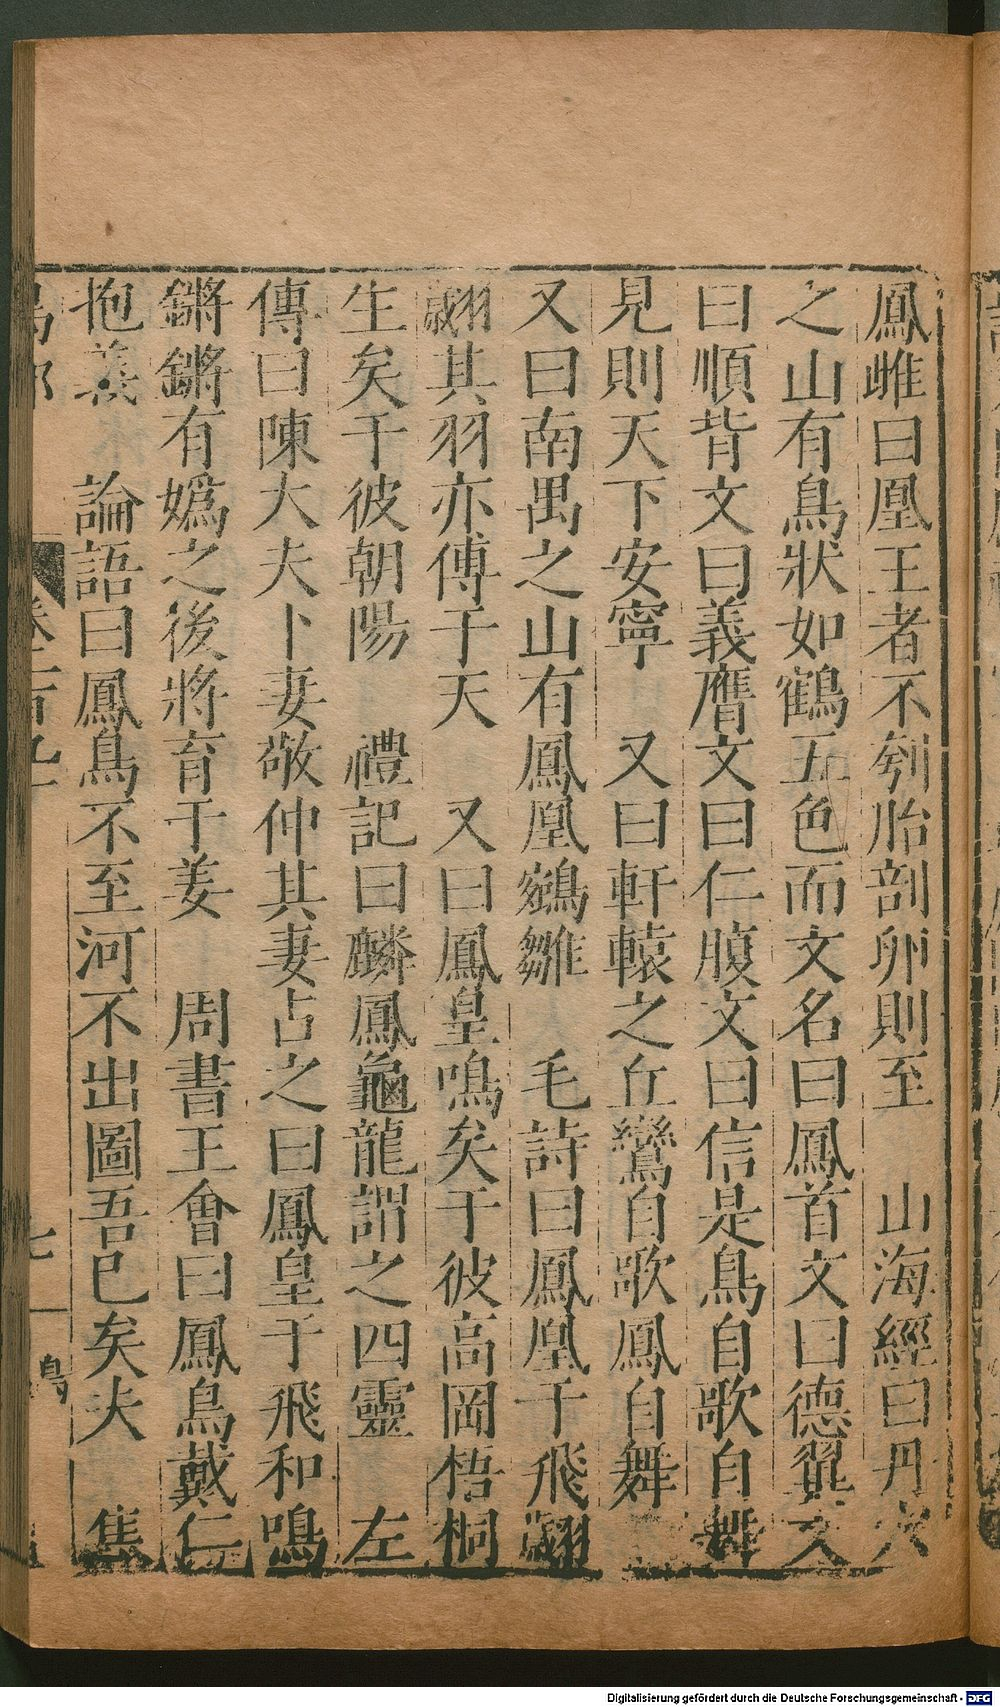 鳳雌曰凰王者不刳胎剖卵則至　山海經曰丹穴
之山有鳥狀如鶴五色而文名曰鳳首文曰德翼文
曰順背文曰義膺文曰仁腹文曰信是鳥自歌自舞
見則天下安寧　又曰軒轅之丘鸞自歌鳳自舞
又曰南禺之山有鳳凰鵷雛　毛詩曰鳳凰于飛翽
翽其羽亦傅于天　又曰鳳皇鳴矣于彼高岡梧桐
生矣于彼朝陽　禮記曰麟鳳龜龍謂之四靈　左
傳曰陳大夫卜妻敬仲其妻占之曰鳳皇于飛和鳴
鏘鏘有嬀之後將育于姜　周書王會曰鳳鳥戴仁
抱義　論語曰鳳鳥不至河不出圖吾已矣夫　集
鳥部
卷
七
鳥
Digitalisierung gefördert durch die Deutsche Forschungsgemeinschaft - DFG